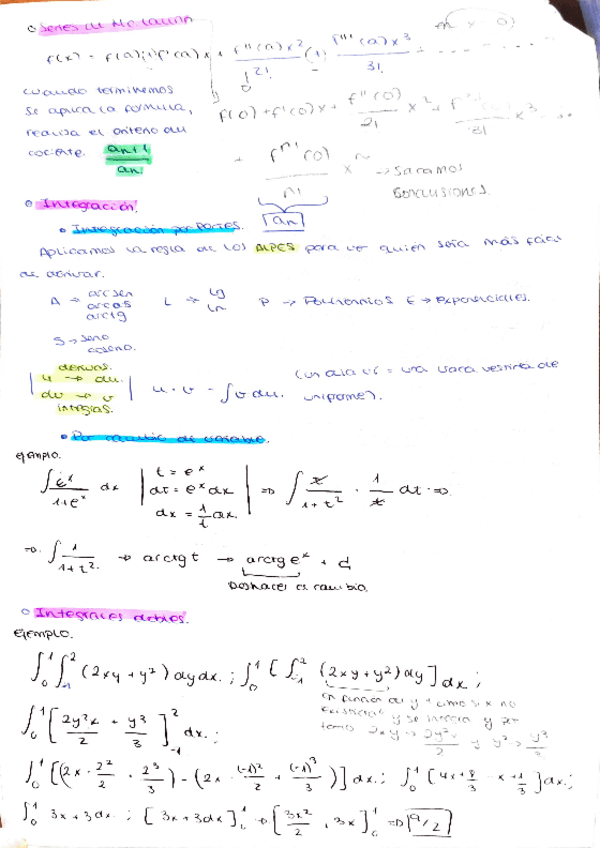 Series de Mc Laurin
f(x) = f(a)(1) f'(a)x + f''(a)x² / 2! (1) f'''(a)x³ / 3! + .......
cuando terminemos
se aplica la formula,
realiza el criterio del
cociente. an+1 / an
f(0) + f'(0)x + f''(0) / 2! x² + f'''(0) / 3! x³ ...
+ fⁿ(0) / n! xⁿ → sacamos
conclusiones.
an
Integración.
Integración por PARTES.
Aplicamos la regla de los ALPES para ver quién sería más fácil
de derivar.
A → arcsen
arccos
arctg
L → lg
ln
P → Polinomios E → Exponenciales.
S → seno
coseno.
derivas.
u → du.
dv → v
integras.
u · v - ∫v du.
(un dia vi = una vaca vestida de
uniforme).
Por cambio de variable.
ejemplo.
∫ eˣ / 1+eˣ dx | t = eˣ
dt = eˣ dx
dx = 1/t dx. | ⇒ ∫ t / 1+t² · 1/t dt ⇒
⇒ ∫ 1 / 1+t² → arctg t → arctg eˣ + C
Deshacer el cambio.
Integrales dobles.
EJEMPLO.
∫₀¹ ∫₋₁² (2xy + y²) dy dx. ; ∫₀¹ [ ∫₋₁² (2xy + y²) dy ] dx ;
en función de y como si x no
existiera y se integra y por
tanto 2xy → 2y² / 2 y y² → y³ / 3
∫₀¹ [ 2y²x / 2 + y³ / 3 ]₋₁² dx. ;
∫₀¹ [(2x · 2² / 2 + 2³ / 3) - (2x · (-1)² / 2 + (-1)³ / 3)] dx. ; ∫₀¹ [4x + 8/3 - x + 1/3] dx. ;
∫₀¹ 3x + 3 dx. ; [3x + 3dx]₀¹ ⇒ [3x² / 2 , 3x]₀¹ ⇒ 9/2